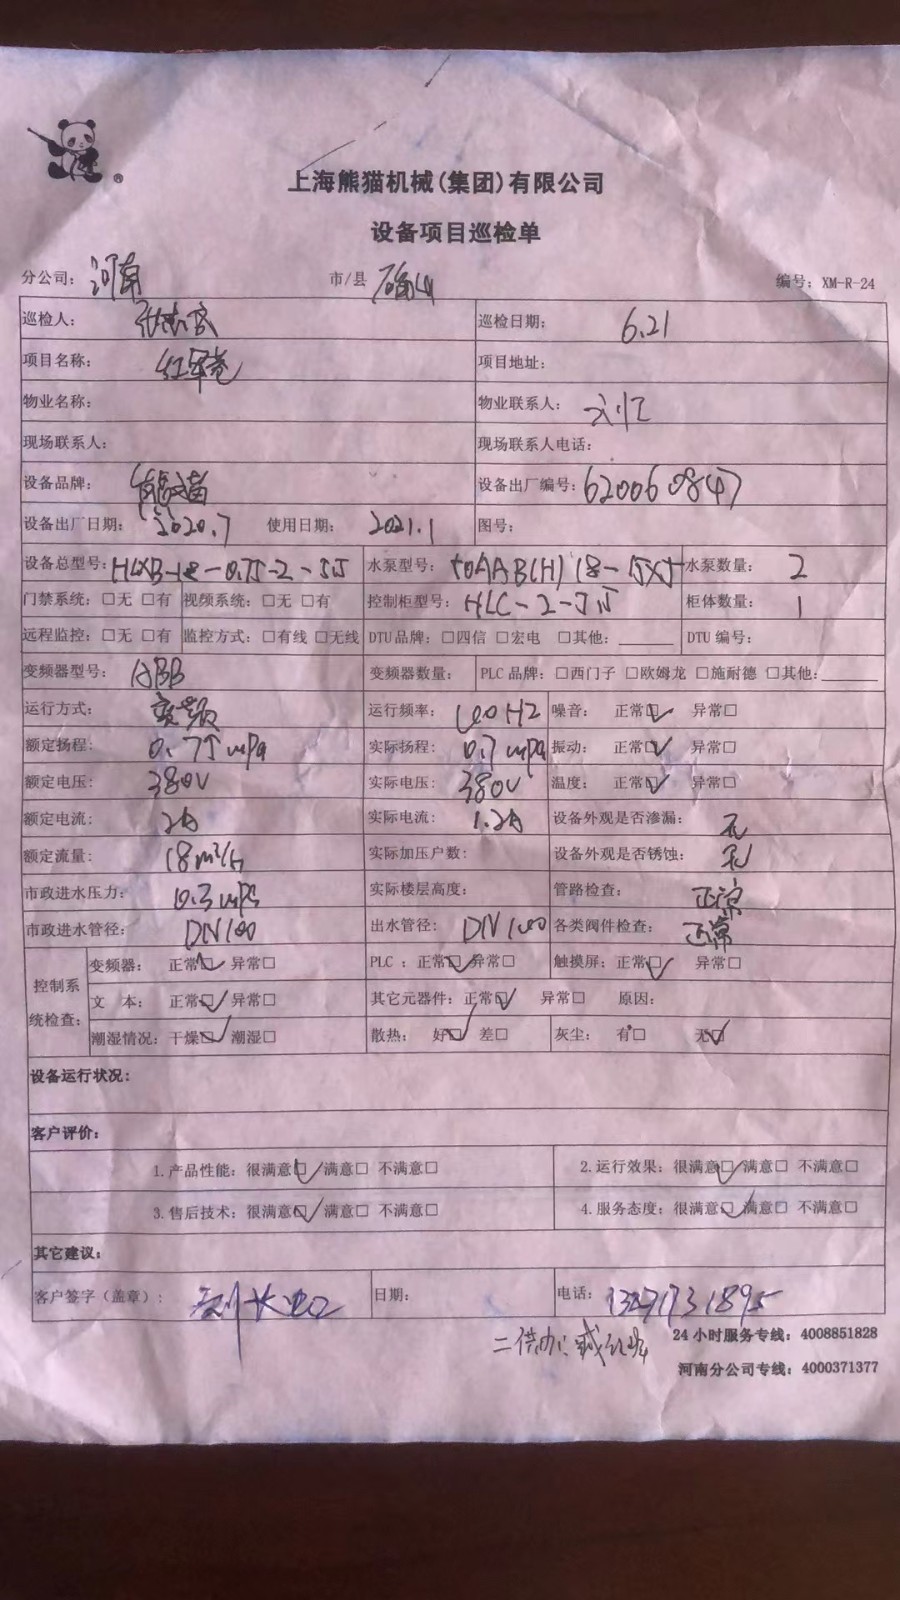 上海熊猫机械(集团)有限公司
设备项目巡检单
分公司: 河南 市/县 确山 编号: XM-R-24
巡检人: 巡检日期: 6.21
项目名称: 红军苑 项目地址:
物业名称: 物业联系人: 刘工
现场联系人: 现场联系人电话:
设备品牌: 熊猫 设备出厂编号: 620060847
设备出厂日期: 2020.7 使用日期: 2021.1 图号:
设备总型号: HLXB-18-0.75-2-5.5 水泵型号: 50AAB(H)18-15X5 水泵数量: 2
门禁系统: □无 □有 视频系统: □无 □有 控制柜型号: HLC-2-5.5 柜体数量: 1
远程监控: □无 □有 监控方式: □有线 □无线 DTU品牌: □四信 □宏电 □其他: DTU编号:
变频器型号: ABB 变频器数量: PLC品牌: □西门子 □欧姆龙 □施耐德 □其他:
运行方式: 变频 运行频率: 噪音: 正常☑ 异常□
额定扬程: 0.75mpa 实际扬程: 0.7mpa 振动: 正常☑ 异常□
额定电压: 380V 实际电压: 380V 温度: 正常☑ 异常□
额定电流: 2A 实际电流: 1.2A 设备外观是否渗漏: 无
额定流量: 18m³/H 实际加压户数: 设备外观是否锈蚀: 无
市政进水压力: 0.3mpa 实际楼层高度: 管路检查: 正常
市政进水管径: DN100 出水管径: DN100 各类阀件检查: 正常
控制系统检查: 变频器: 正常☑ 异常□ PLC: 正常☑ 异常□ 触摸屏: 正常☑ 异常□
文 本: 正常☑ 异常□ 其它元器件: 正常☑ 异常□ 原因:
潮湿情况: 干燥☑ 潮湿□ 散热: 好☑ 差□ 灰尘: 有□ 无☑
设备运行状况:
客户评价:
1.产品性能: 很满意☑ 满意□ 不满意□ 2.运行效果: 很满意☑ 满意□ 不满意□
3.售后技术: 很满意☑ 满意□ 不满意□ 4.服务态度: 很满意☑ 满意□ 不满意□
其它建议:
客户签字(盖章): 日期: 电话: 13271731895
二供办: 24小时服务专线: 4008851828
河南分公司专线: 4000371377